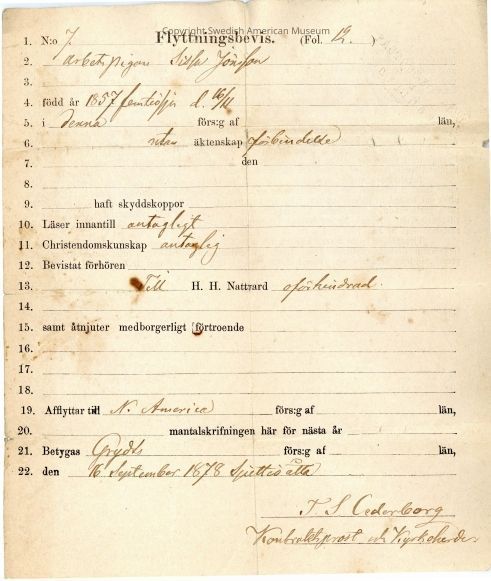 Copyright Swedish American Museum
1. N:o 7. Flyttningsbevis. (Fol. 12. )
2. Arbetspigan Sissa Jönsson
3.
4. född år 1857 femtiosju d. 16/11
5. i denna förs:g af län,
6. utan äktenskap förbindelse
7. den
8.
9. haft skyddskoppor
10. Läser innantill antagligt
11. Christendomskunskap antaglig
12. Bevistat förhören
13. Till H. H. Nattvard oförhindrad.
14.
15. samt åtnjuter medborgerligt förtroende
16.
17.
18.
19. Afflyttar till N. America förs:g af län,
20. mantalskrifningen här för nästa år
21. Betygas Grydts förs:g af län,
22. den 16 September 1878 Sjuttioåtta
T. S. Cederborg
Kontraktsprost och Kyrkoherde